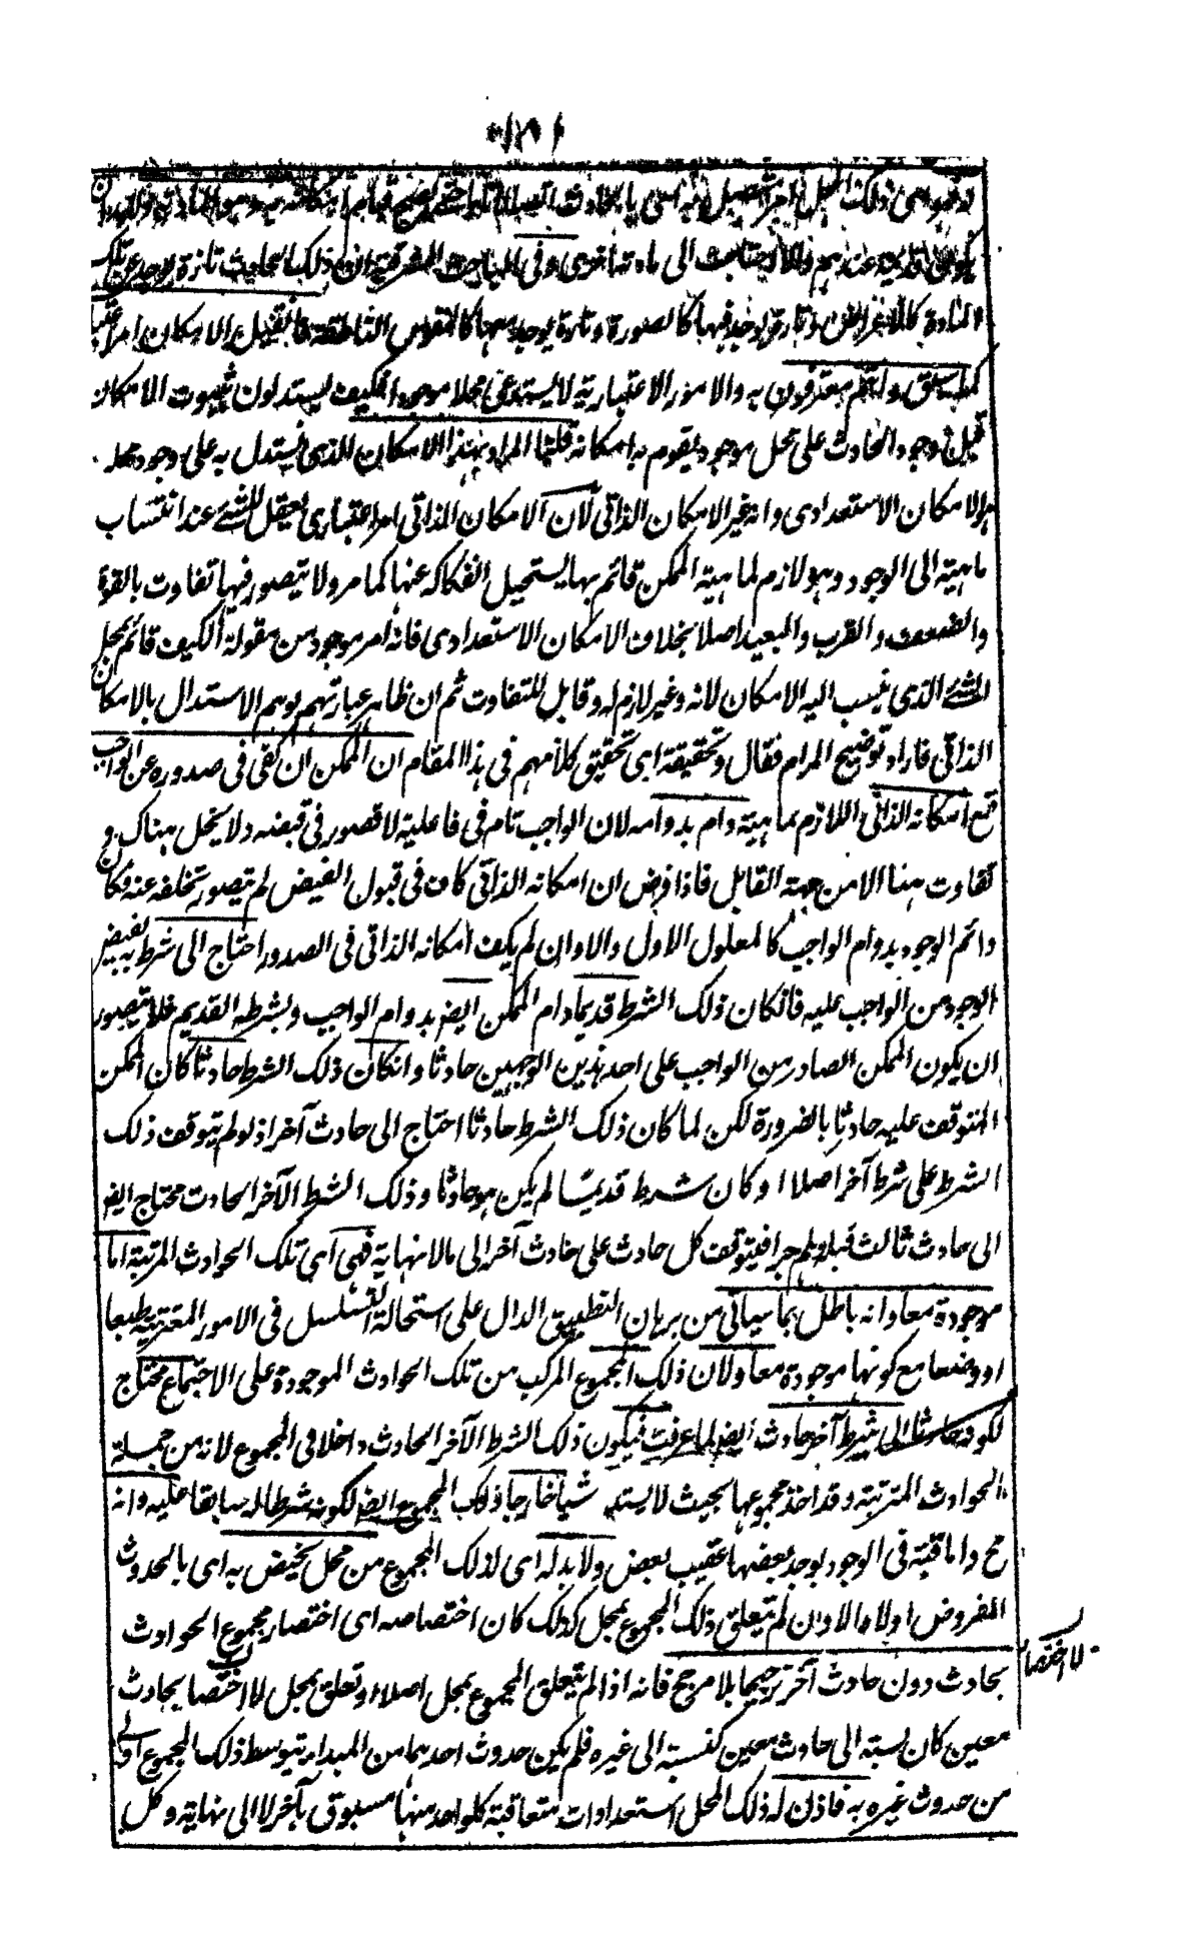 المادة كالاعراض وتارة يوجد فيها كالصورة وتارة يوجد معها كالنفوس الناطقة فان قيل الامكان امر
كما سبق وانتم معترفون به والامور الاعتبارية لا يستدعى محلا موجودا فكيف يستدلون بثبوت الامكان
قبل وجود الحادث على محل موجود يقوم به امكانه قلنا المراد بهذا الامكان الذى يستدل به على وجود محله
هو الامكان الاستعدادى وانه غير الامكان الذاتى لان الامكان الذاتى امر اعتبارى يعقل للشئ عند انتساب
ماهيته الى الوجود وهو لازم لماهية الممكن قائم بها يستحيل انفكاكه عنها كما مر ولا يتصور فيها تفاوت بالقوة
والضعف والقرب والبعد اصلا بخلاف الامكان الاستعدادى فانه امر موجود من مقولة الكيف قائم بمحل
الشئ الذى ينسب اليه الامكان لا به وغير لازم له وقابل للتفاوت ثم ان ظاهر عبارتهم يوهم الاستدلال بالامكان
الذاتى فاراد توضيح المرام فقال وتحقيقه اى تحقيق كلامهم فى هذا المقام ان الممكن ان كفى فى صدوره عن الواجب
تع امكانه الذاتى اللازم لماهيته دام بدوامه لان الواجب تام فى فاعليته لا قصور فى فيضه ولا بخل هناك و
تفاوت هنا الا من جهة القابل فاذا فرض ان امكانه الذاتى كاف فى قبول الفيض لم يتصور تخلفه عنه فكان
دائم الوجود بدوام الواجب كالمعلول الاول والا وان لم يكف امكانه الذاتى فى الصدور احتاج الى شرط به يفيض
الوجود من الواجب عليه فان كان ذلك الشرط قديما دام الممكن ايضا بدوام الواجب وبشرطه القديم فلا يتصور
ان يكون الممكن الصادر من الواجب على احد هذين الوجهين حادثا وانكان ذلك الشرط حادثا كان الممكن
المتوقف عليه حادثا بالضرورة لكن لما كان ذلك الشرط حادثا احتاج الى حادث آخر اذ لو لم يتوقف ذلك
الشرط على شرط آخر اصلا او كان شرط قديمًا لم يكن هو حادثا وذلك الشرط الآخر الحادث محتاج ايضا
الى حادث ثالث قبله وهلم جرا فيتوقف كل حادث على حادث آخر الى مالا نهاية فهى اى تلك الحوادث المرتبة اما
موجودة معا وانه باطل بما سياتى من برهان التطبيق الدال على استحالة التسلسل فى الامور المترتبة طبعا
او وضعا مع كونها موجودة معا ولان ذلك المجموع المركب من تلك الحوادث الموجودة على الاجتماع محتاج
لكونه حادثا الى شرط آخر حادث ايضا لما عرفت فيكون ذلك الشرط الآخر الحادث داخلا فى المجموع لانه من جملة
الحوادث المترتبة وقد اخذ مجموعها بحيث لا يشذ شيا خارجا ذلك المجموع ايضا لكونه شرطا له سابقا عليه وانه
مح واما متعاقبة فى الوجود يوجد بعضها عقيب بعض ولا بد له اى لذلك المجموع من محل يختص به اى بالحدوث
المفروض اولا والا وان لم يتعلق ذلك المجموع بمحل كذلك كان اختصاصه اى اختصاص مجموع الحوادث
بحادث دون حادث آخر ترجيحا بلا مرجح فانه اذا لم يتعلق المجموع بمحل اصلا او تعلق بمحل لا اختصا بحادث
لا اختصا
معين كان نسبته الى حادث معين كنسبته الى غيره فلم يكن حدوث احدهما من المبدا بتوسط ذلك المجموع اولى
من حدوث غيره به فاذن له لذلك المحل استعدادات متعاقبة كلواحد منها مسبوق بآخر لا الى نهاية وكل